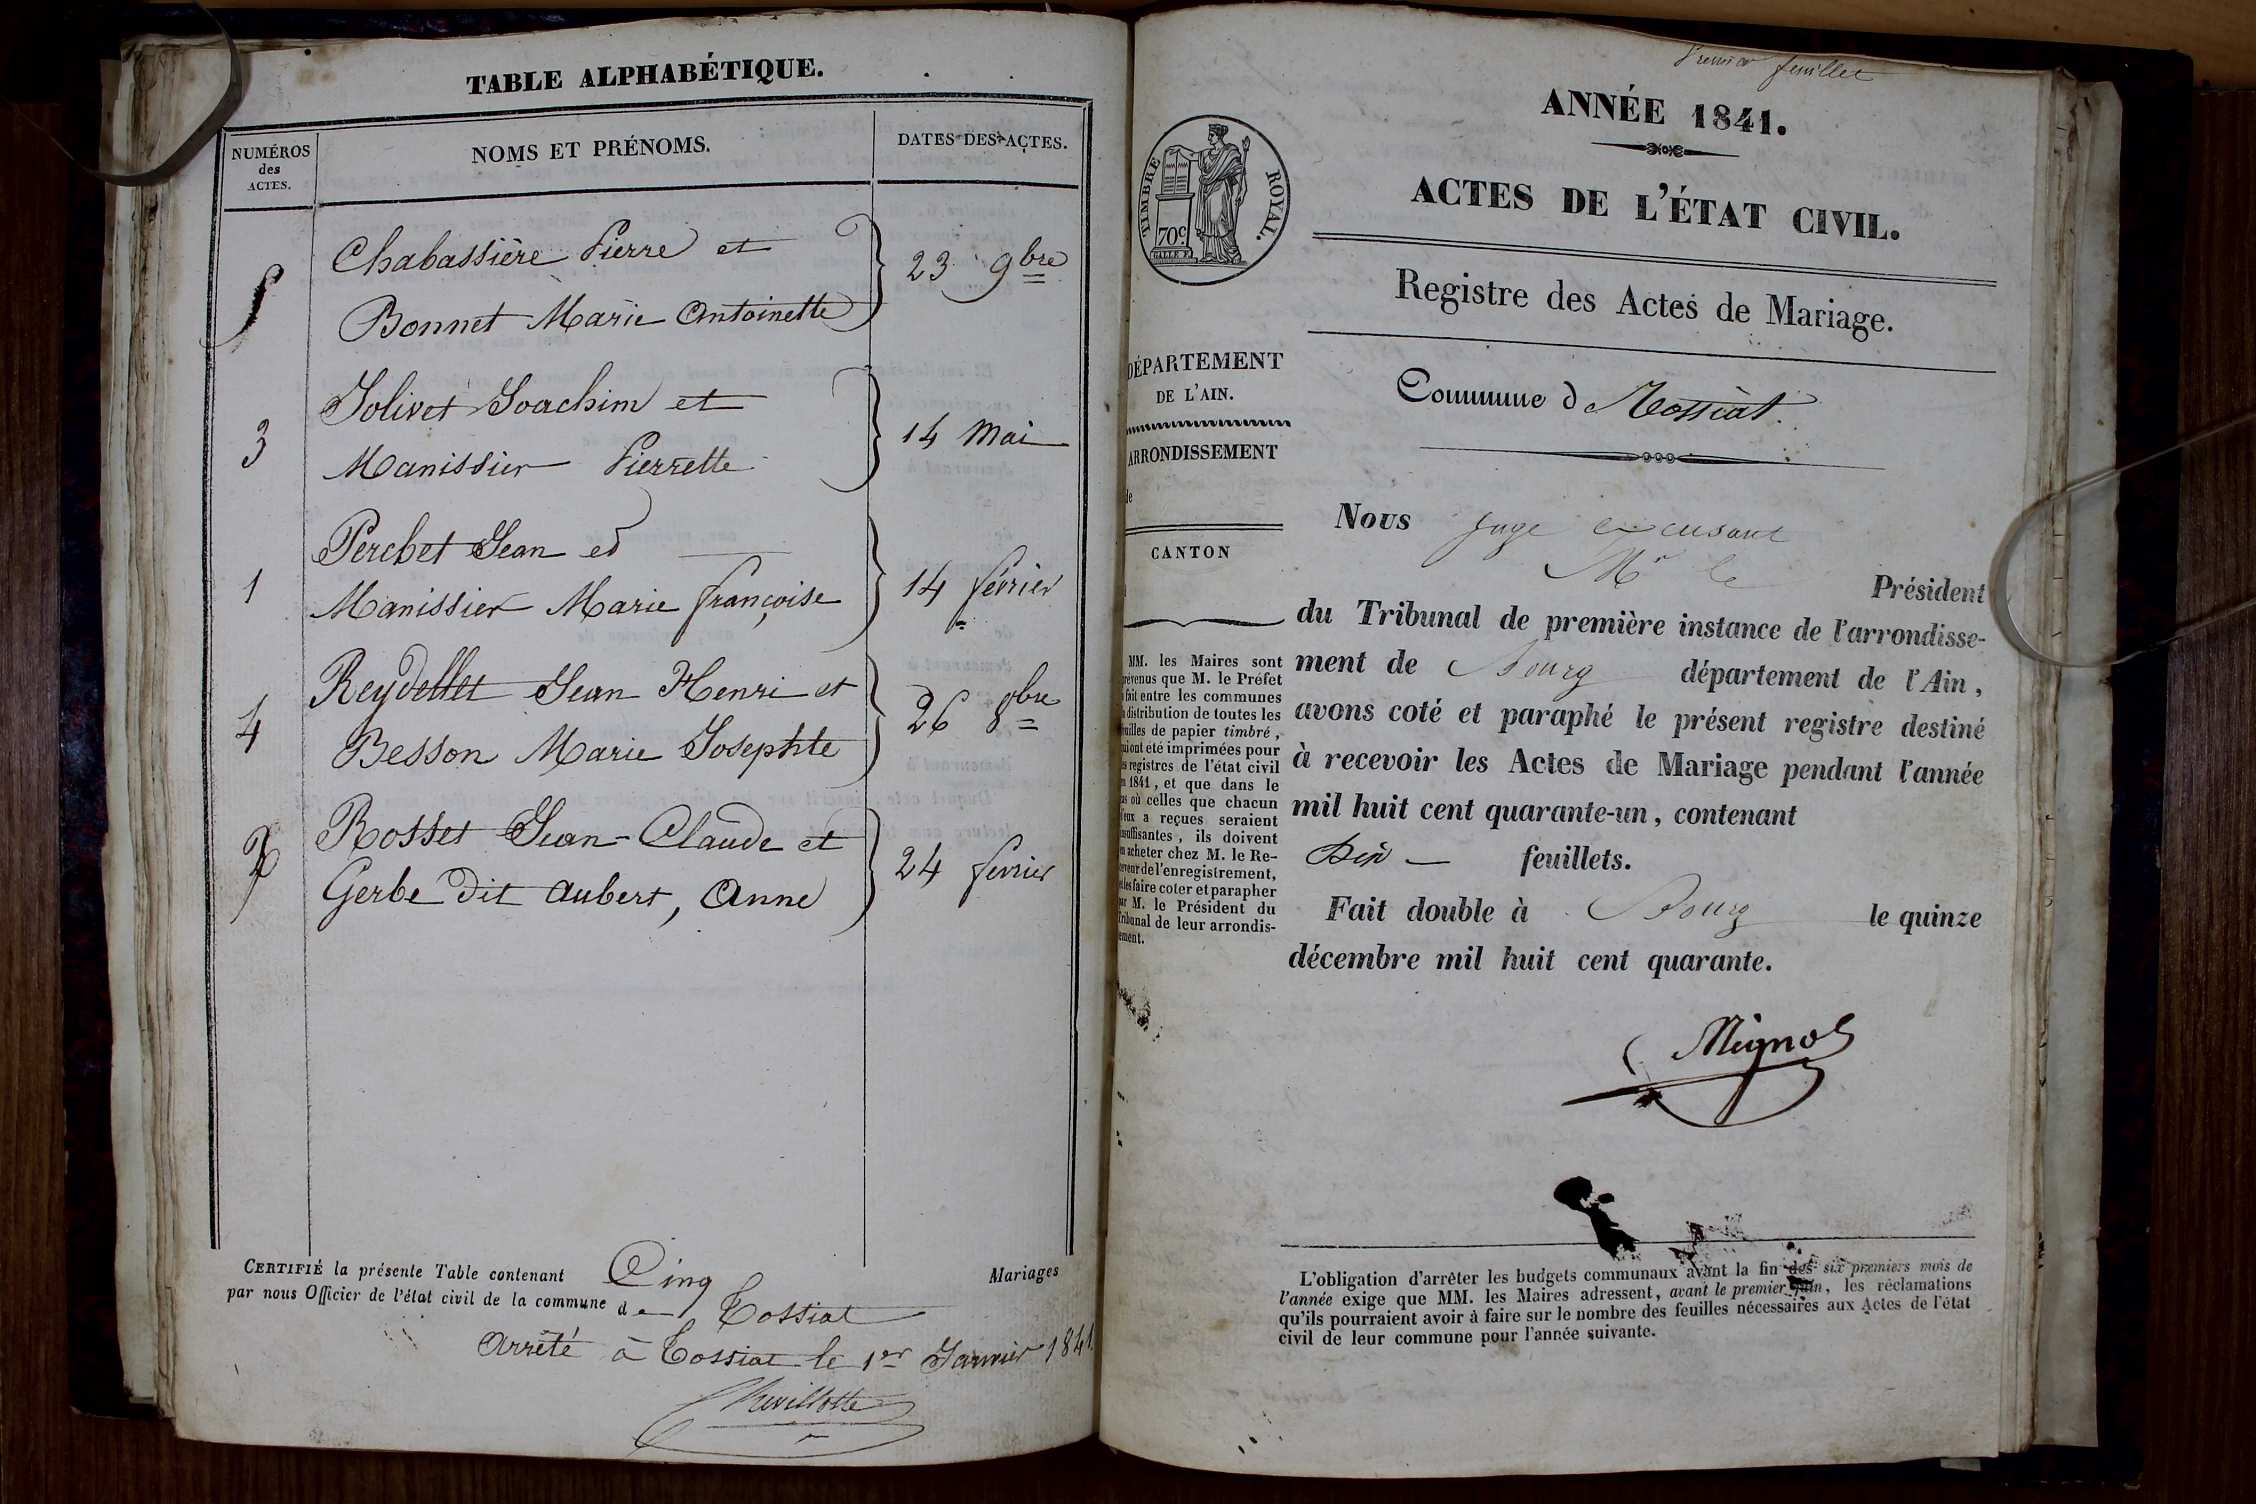 TABLE ALPHABÉTIQUE.
NUMÉROS
des
ACTES.
NOMS ET PRÉNOMS.
DATES DES ACTES.
5
Chabassière Pierre et
Bonnet Marie Antoinette
23 9bre
3
Jolivet Joachim et
Manissier Pierrette
14 Mai
1
Perchet Jean et
Manissier Marie françoise
14 février
4
Reydellet Jean Henri et
Besson Marie Josephte
26 8bre
2
Rosset Jean-Claude et
Gerbe dit Aubert, Anne
24 fevrier
CERTIFIÉ la présente Table contenant Cinq Mariages
par nous Officier de l'état civil de la commune de Tossiat
Arrêté à Tossiat le 1er Janvier 1841.
Chevillotte
Premier feuillet
ANNÉE 1841.
TIMBRE ROYAL.
70c
ACTES DE L'ÉTAT CIVIL.
Registre des Actes de Mariage.
DÉPARTEMENT
DE L'AIN.
ARRONDISSEMENT
de
CANTON
Commune d Tossiat.
Nous Juge excusant
Mr le Président
du Tribunal de première instance de l'arrondisse-
ment de Bourg département de l'Ain,
avons coté et paraphé le présent registre destiné
à recevoir les Actes de Mariage pendant l'année
mil huit cent quarante-un, contenant
Dix feuillets.
Fait double à Bourg le quinze
décembre mil huit cent quarante.
Mignot
MM. les Maires sont
prévenus que M. le Préfet
a fait entre les communes
la distribution de toutes les
feuilles de papier timbré,
qui ont été imprimées pour
les registres de l'état civil
en 1841, et que dans le
cas où celles que chacun
d'eux a reçues seraient
insuffisantes, ils doivent
en acheter chez M. le Re-
ceveur de l'enregistrement,
et les faire coter et parapher
par M. le Président du
Tribunal de leur arrondis-
sement.
L'obligation d'arrêter les budgets communaux avant la fin des six premiers mois de
l'année exige que MM. les Maires adressent, avant le premier juin, les réclamations
qu'ils pourraient avoir à faire sur le nombre des feuilles nécessaires aux Actes de l'état
civil de leur commune pour l'année suivante.